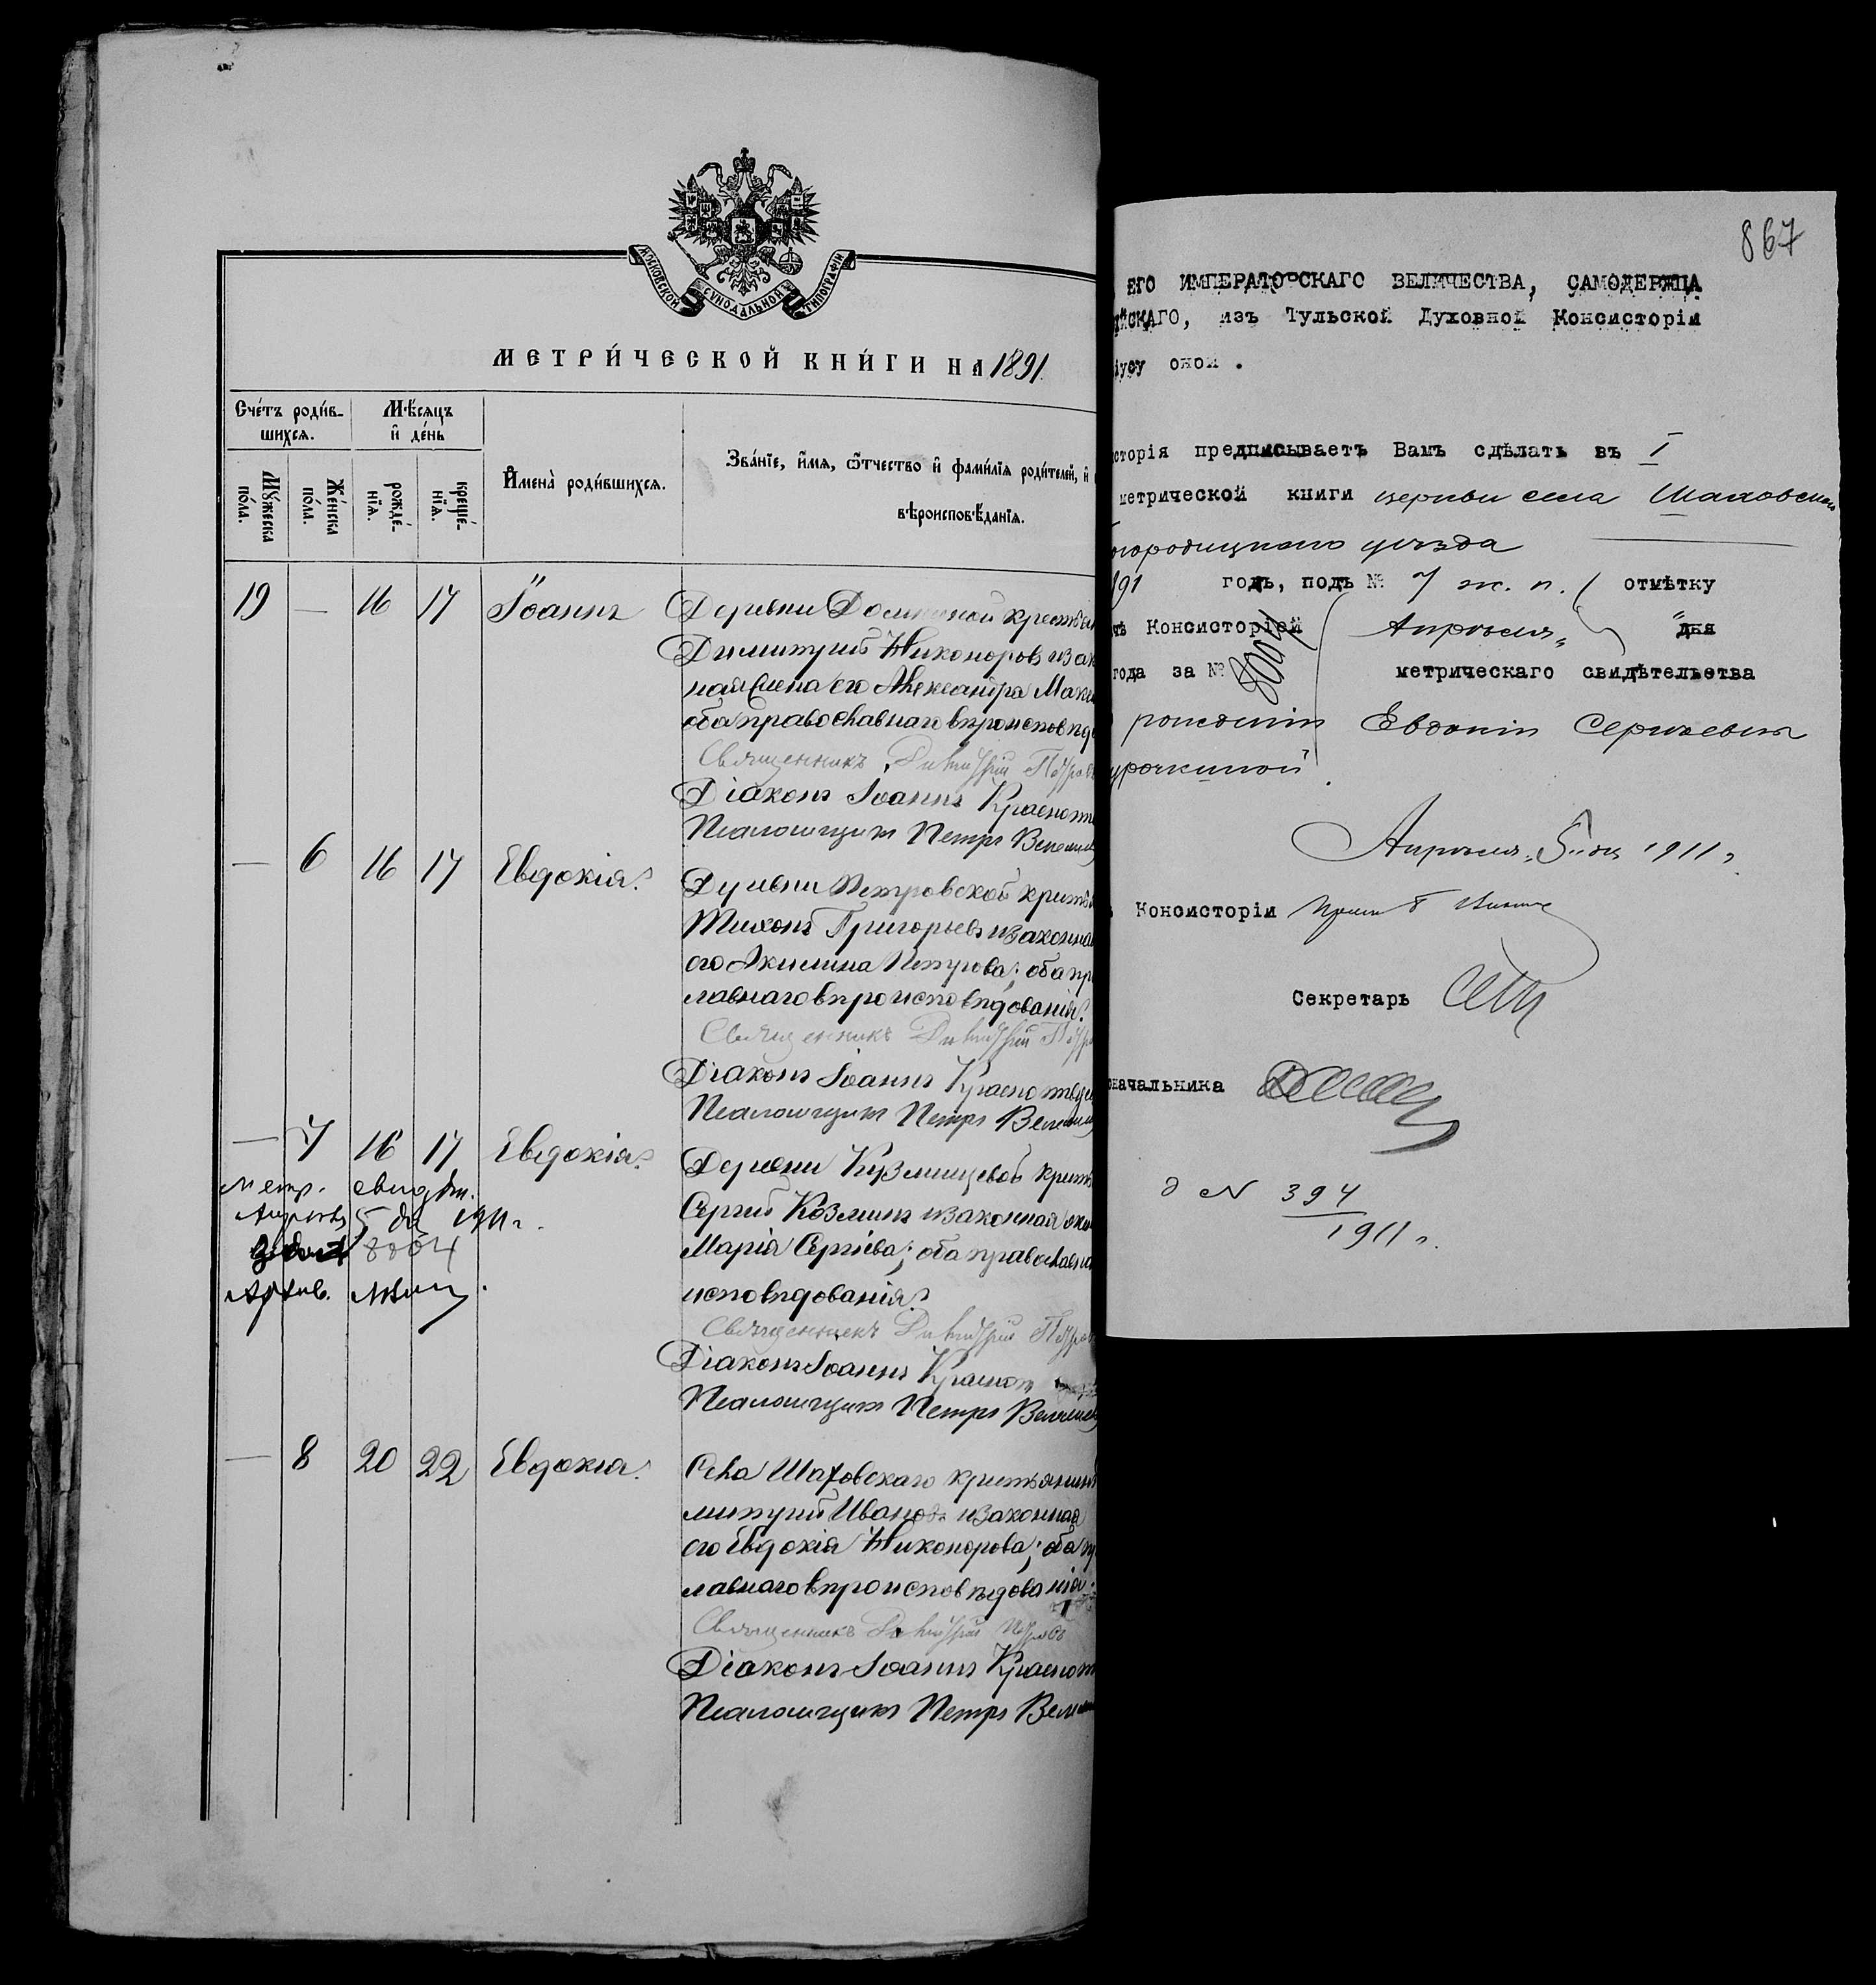 МОСКОВСКОЙ СУНОДАЛЬНОЙ ТИПОГРАФІИ
МЕТРИ́ЧЕСКОЙ КНИ́ГИ НА 1891.
Сче́тъ роди́в-
шихся.
Мѣ́сяцъ
и҆ де́нь
Мꙋ́жеска
по́ла.
Же́нска
по́ла.
рожде́-
нїя.
креще́-
нїя.
И҆мена̀ роди́вшихся.
Зва́нїе, и҆́мя, ѻ҆́тчество и҆ фами́лїя роди́телей, и҆
вѣроисповѣ́данїя.
19 — 16 17 Іоаннъ
Деревни крестьян
Димитрій Никоноровъ и зак
ная жена его Александра Мак
оба православнаго вѣроисповѣд
Священникъ Димитрій Петров
Діаконъ Іоаннъ Красноп
Псаломщикъ Петръ
— 6 16 17 Евдокія.
Деревни Петровской кресть
Тихонъ Григорьевъ и законна
его Акилина Петрова; оба пр
лавнаго вѣроисповѣдованія.
Священникъ Димитрій Петр
Діаконъ Іоаннъ
Псаломщикъ Петръ
— 7 16 17 Евдокія.
Метр. свидѣт.
Апрѣля 5 дня 1911 г.
8004
Архив.
Деревни Кузмищевой крест
Сергій Козминъ и законная
Марія Сергіева; оба православн
исповѣдованія.
Священникъ Димитрій Петров
Діаконъ Іоаннъ
Псаломщикъ Петръ
— 8 20 22 Евдокія.
Села Шаховскаго крестьянинъ
митрій Ивановъ и законная
его Евдокія Никонорова; оба п
лавнаго вѣроисповѣдованія.
Священникъ Димитрій Петровъ
Діаконъ Іоаннъ
Псаломщикъ Петръ
867
ЕГО ИМПЕРАТОРСКАГО ВЕЛИЧЕСТВА, САМОДЕРЖЦА
ІЙСКАГО, изъ Тульской Духовной Консисторіи
іусу оной .
сторія предписываетъ Вамъ сдѣлать въ I
метрической книги церкви села Шаховскаго
огородицкаго уѣзда
191 годъ, подъ № 7 ж. п. отмѣтку
Консисторіей Апрѣля „ „ дня
года за № 8004 метрическаго свидѣтельства
рожденіи Евдокіи Сергѣевны
урочкиной.
Апрѣля „5„ дня 1911 г.
Консисторіи
Секретарь
оначальника
д № 394
1911 г.